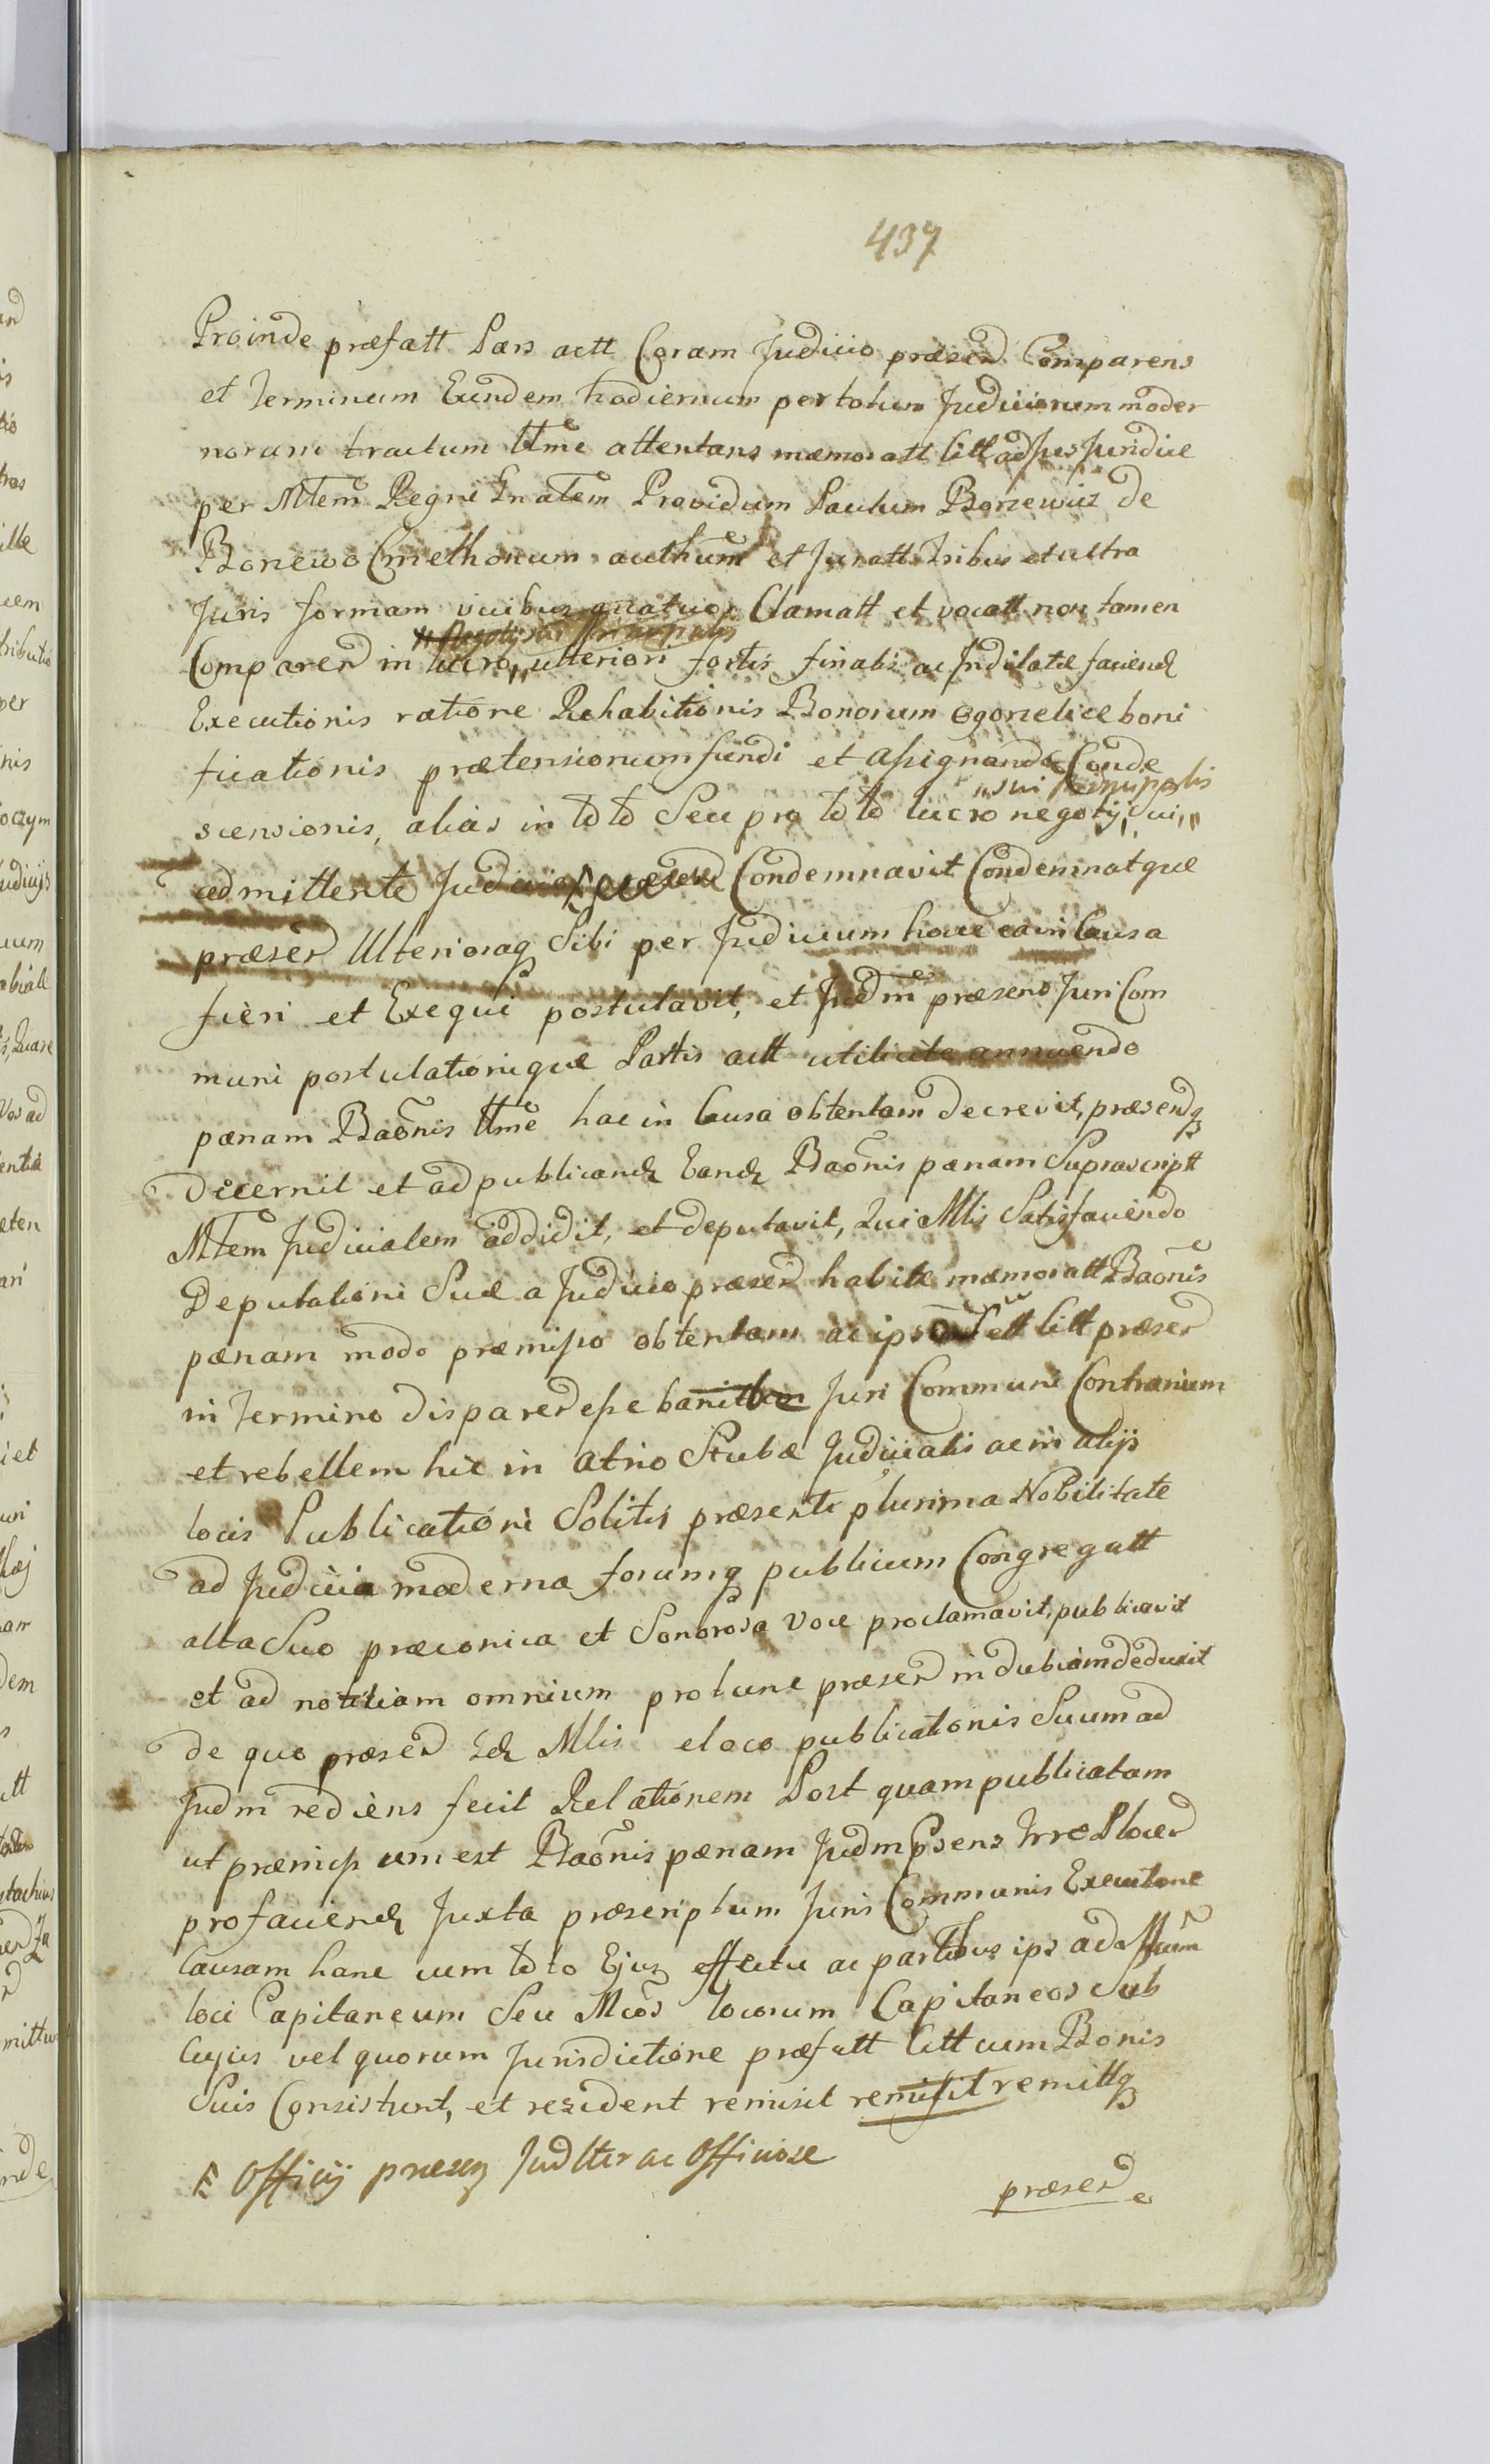 437
Proinde præfatt Pars actt Coram Judicio præsend Comparens
et Terminum Eundem hodiernum per totum Judiciorum moder
norum tractum ttme attentans memoratt Citt ad Jus Juridice
per Mtem Regni Gnalem Providum Paulum Borzewicz de
Borzewo Cmethonum authum et Juratt tribus et ultra
Juris formam vicibus quatuor Clamatt et vocatt non tamen
Negotij sui Principalis
Comparend in lucro ulteriori fortis finalis ac Indilatæ faciendæ
Executionis ratione Rehabitionis Bonorum Ogorzelice boni
ficationis prætensionum fundi et assignandæ Conde
sui Principalis
scensionis, alias in toto Seu pro toto lucro negotij Sui
admittente Judicio præsend Condemnavit Condemnatque
præsend Ulterioraq Sibi per Judicium hocce ea in Causa
fieri et Exequi postulavit, et Judm præsens Juri Com
muni postulationique Partis actt utilicite annuendo
pænam Baonis ttme hac in Causa obtentam decrevit, præsendq
decernit et ad publicand Eand Baonis pænam Suprascriptt
Mtem Judicialem addidit, et deputavit, Qui Mlis Satisfaciendo
Deputationi Suæ a Judicio præsend habitæ memoratt Baonis
pænam modo præmisso obtentam ac ips Citt præsend
in Termino disparend esse banittum Juri Communi Contrarium
et rebellem hic in atrio Stubæ Judicialis ac in alijs
locis Publicationi Solitis præsente plurima Nobilitate
ad Judicia moderna forumq publicum Congregatt
alta Suo præconica et Sonorosa voce proclamavit, publicavit
et ad notitiam omnium protunc præsend indubiam deduxit
de quo præsend Id Mlis e loco publicationis Suum ad
Judm rediens fecit Relationem Post quam publicatam
ut præmissum est Baonis pænam Judm Psens Irræ
pro faciend Juxta præscriptum Juris Communis Executione
Causam hanc cum toto Ejus effectu ac partibus ips ad Mcum
loci Capitaneum Seu Mcos locorum Capitaneos Sub
Cujus vel quorum Jurisdictione præfatt Citt cum Bonis
Suis Consistunt, et resident remisit remisit remittq
Officij præsen Judlter ac Officiose
præsend